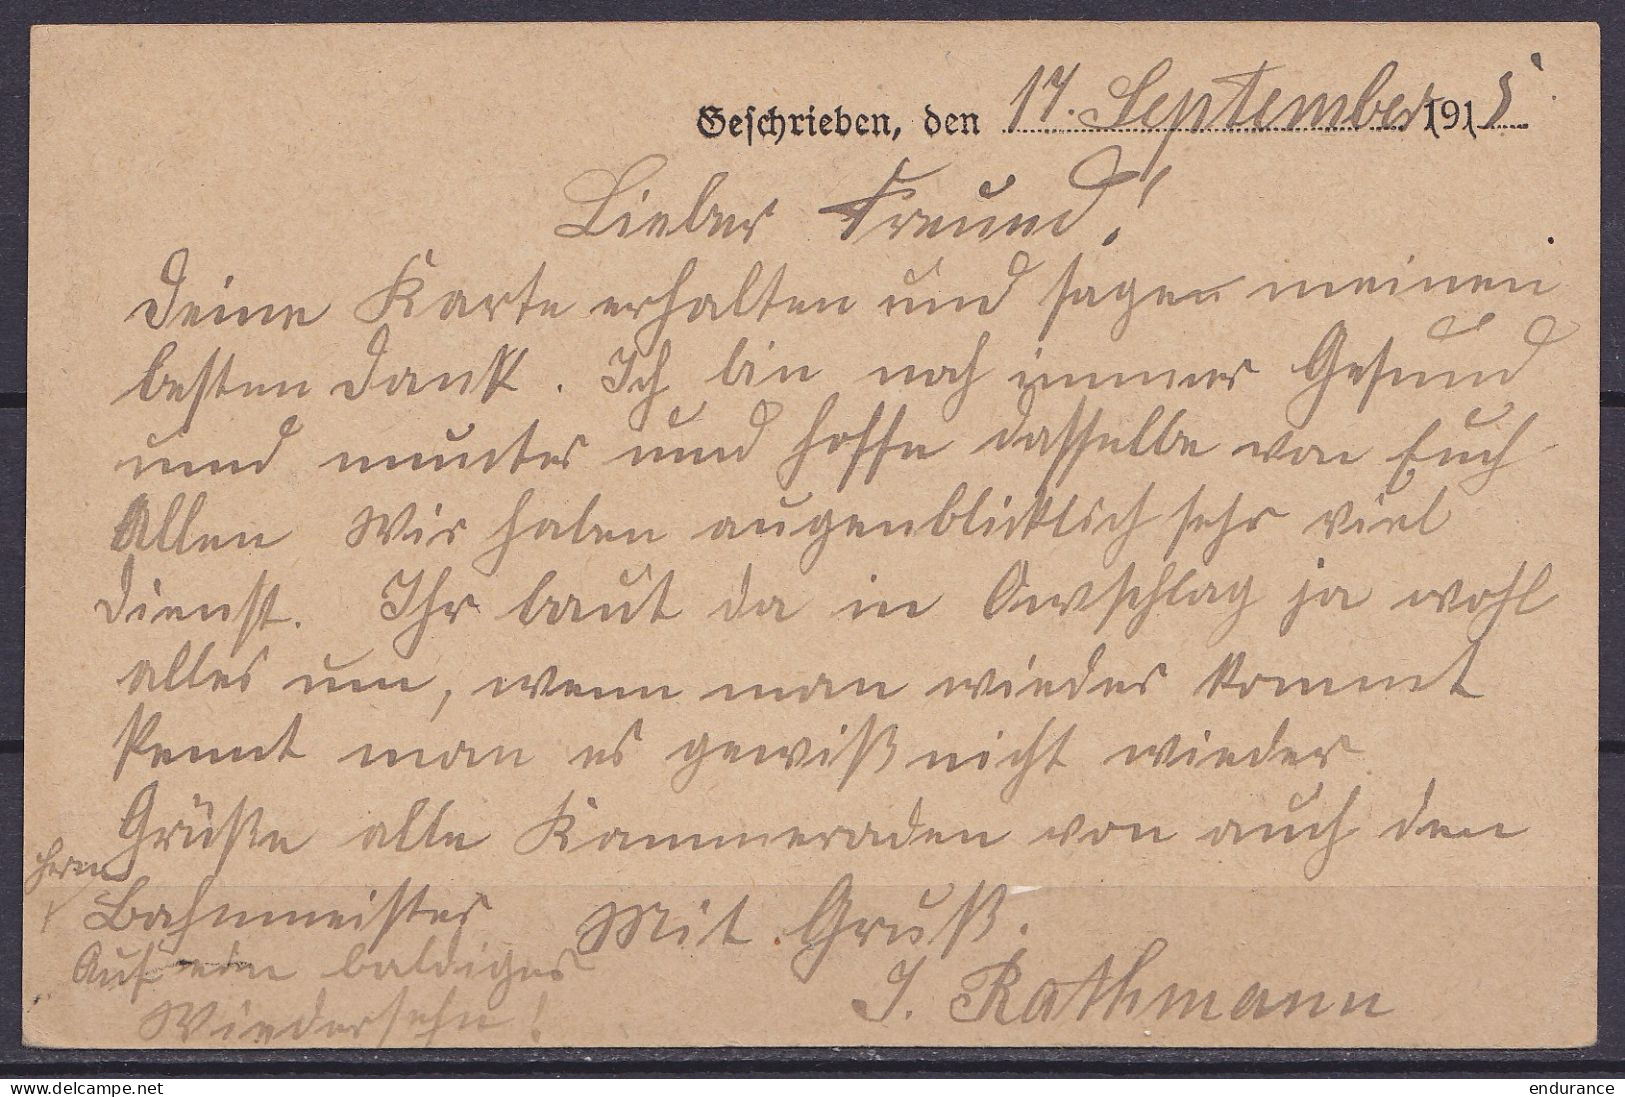 Geschrieben, den 17. September 1915
Lieber Freund!
Deine Karte erhalten und sagen meinen
besten Dank. Ich bin noch immer Gesund
und munter und hoffe dasselbe von Euch
Allen Wir haben augenblicklich sehr viel
Dienst. Ihr baut da in Owschlag ja wohl
alles um, wenn man wieder kommt
kennt man es gewiß nicht wieder
Grüße alle Kammeraden von auch den
Herrn
Bahnmeister Mit Gruß.
Auf ein baldiges
J. Rathmann
Wiedersehn!
delcampe.net
endurance